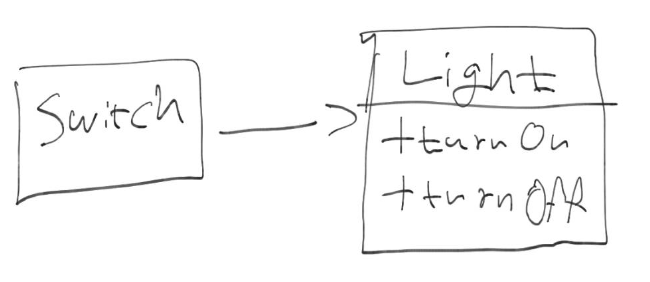 Switch
Light
+turn On
+turn Off